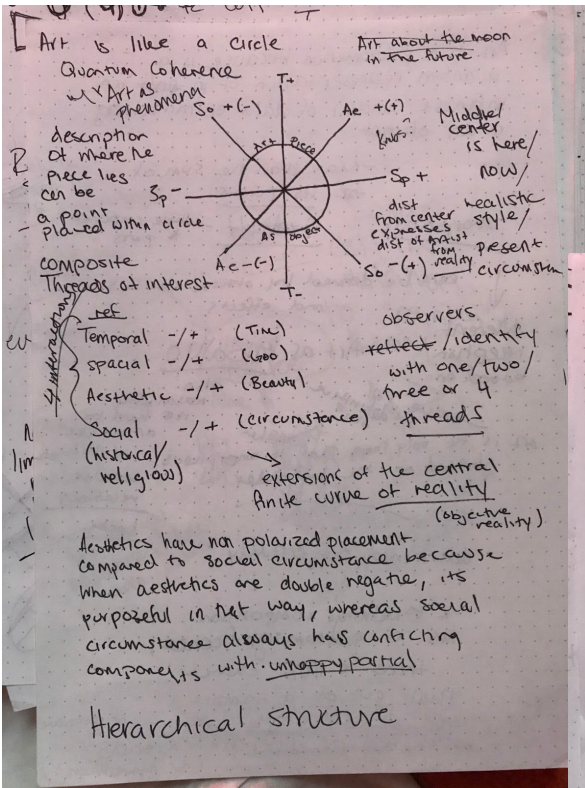 Art is like a circle
Quantum Coherence
Art as
phenomena
Art about the moon
in the future
T+
So +(-)
Ae +(+)
Art Piece
description
of where the
piece lies
can be
a point
placed within circle
Sp -
Sp +
As Object
Ae -(-)
T-
So -(+)
Middle/
center
is here/
now/
realistic
style/
present
circumstan
dist
from center
expresses
dist of Artist
from
reality
composite
Threads of interest
4 interaction
ref
Temporal -/+ (Time)
spacial -/+ (Geo)
Aesthetic -/+ (Beauty)
Social -/+ (circumstance)
(historical/
religious)
observers
reflect /identify
with one/two/
three or 4
threads
extensions of the central
finite curve of reality
(objective
reality)
Aesthetics have non polarized placement
compared to social circumstance because
when aesthetics are double negative, its
purposeful in that way, whereas social
circumstance always has conflicting
components with unhappy partial
Hierarchical structure